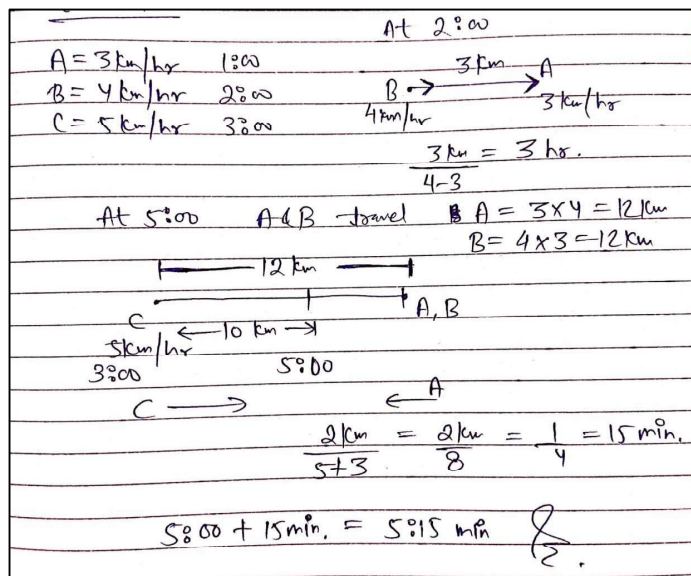 At 2:00
A = 3 km/hr 1:00
B = 4 km/hr 2:00
C = 5 km/hr 3:00
3 km
B A
4 km/hr 3 km/hr
3 km / 4-3 = 3 hr.
At 5:00 A & B travel A = 3 × 4 = 12 km
B = 4 × 3 = 12 km
12 km
C A, B
10 km
5 km/hr
3:00 5:00
C A
2 km / 5+3 = 2 km / 8 = 1 / 4 = 15 min.
5:00 + 15 min. = 5:15 min